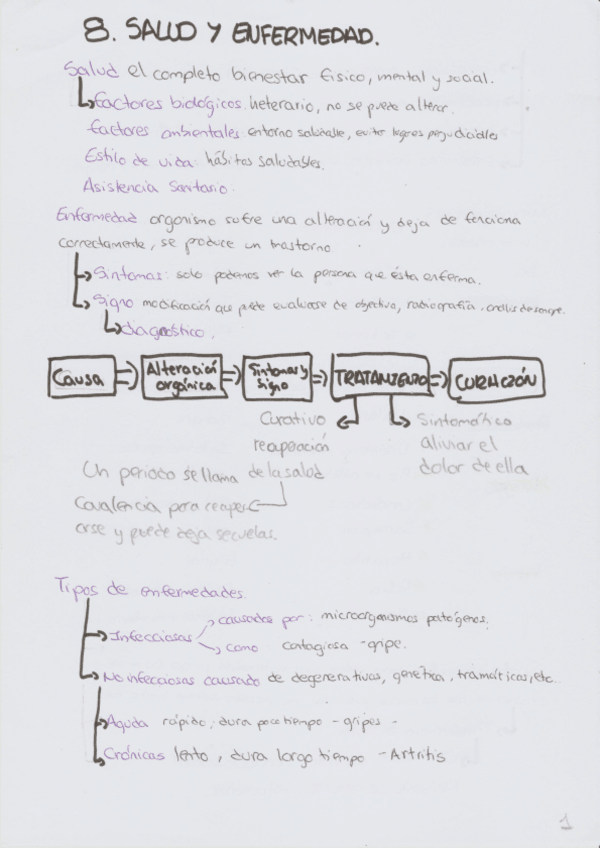 8. SALUD Y ENFERMEDAD.
Salud el completo bienestar físico, mental y social.
Factores biológicos: heterario, no se puede alterar.
Factores ambientales: entorno saludable, evitar lugares perjudiciables
Estilo de vida: hábitos saludables.
Asistencia Sanitario.
Enfermedad organismo sufre una alteración y deja de funciona
correctamente, se produce un trastorno.
Síntomas: solo podemos ver la persona que ésta enferma.
Signo modificación que puede evaluarse de objectiva, radiografía
diagnóstico.
Causa => Alteración orgánica => Síntomas y Signo => TRATAMIENTO => CURACIÓN
Curativo
recuperación
de la salud
Sintomático
aliviar el
dolor de ella
Un periodo se llama
Covalencia para recuper
arse y puede deja secuelas.
Tipos de enfermedades.
Infecciosas
causadas por: microorganismos patógenos.
como contagiosa -gripe.
No infecciosas causado de degenerativas, genética, tramáticas, etc.
Aguda rápido; dura poco tiempo - gripes -
Crónicas lento, dura largo tiempo - Artritis
1